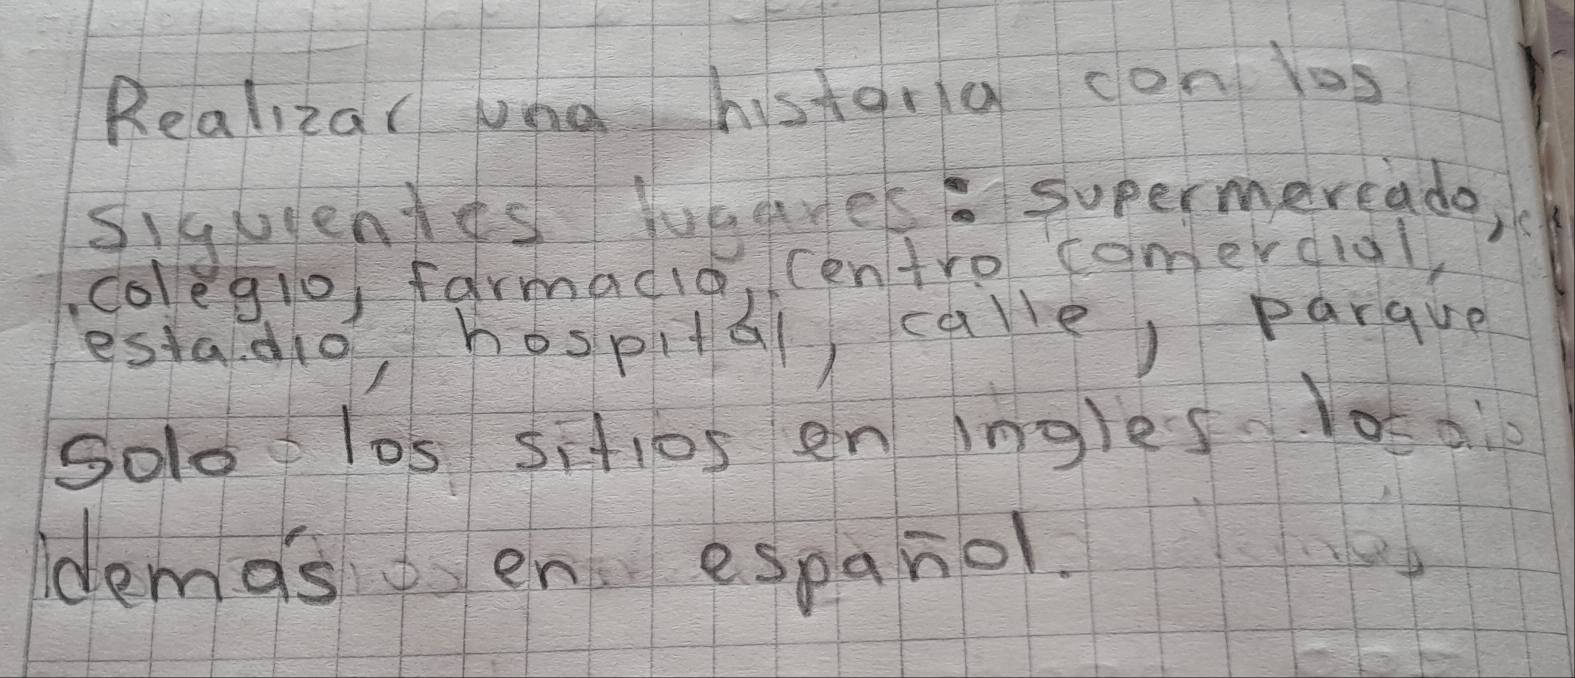 Realizar una historia con los
siguientes lugares: supermercado,
colegio, farmacia, centro comercial,
estadio, hospital, calle, parque
Solo los sitios en ingles. los
demás en español.